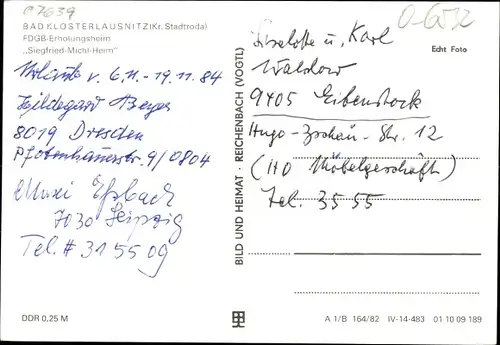 C7639
O-6532
BAD KLOSTERLAUSNITZ (Kr. Stadtroda)
FDGB-Erholungsheim
„Siegfried-Michl-Heim"
Urlaub v. 6.11.-19.11.84
Hildegard Beyer
8019 Dresden
Pfotenhauerstr. 9/0804
7030 Leipzig
Tel. # 315509
DDR 0,25 M
BILD UND HEIMAT · REICHENBACH (VOGTL)
Echt Foto
Liselotte u. Karl
Waldow
9405 Eibenstock
Hugo-Zschau-Str. 12
(HO Möbelgeschäft)
Tel. 3555
A 1/B 164/82 IV-14-483 01 10 09 189